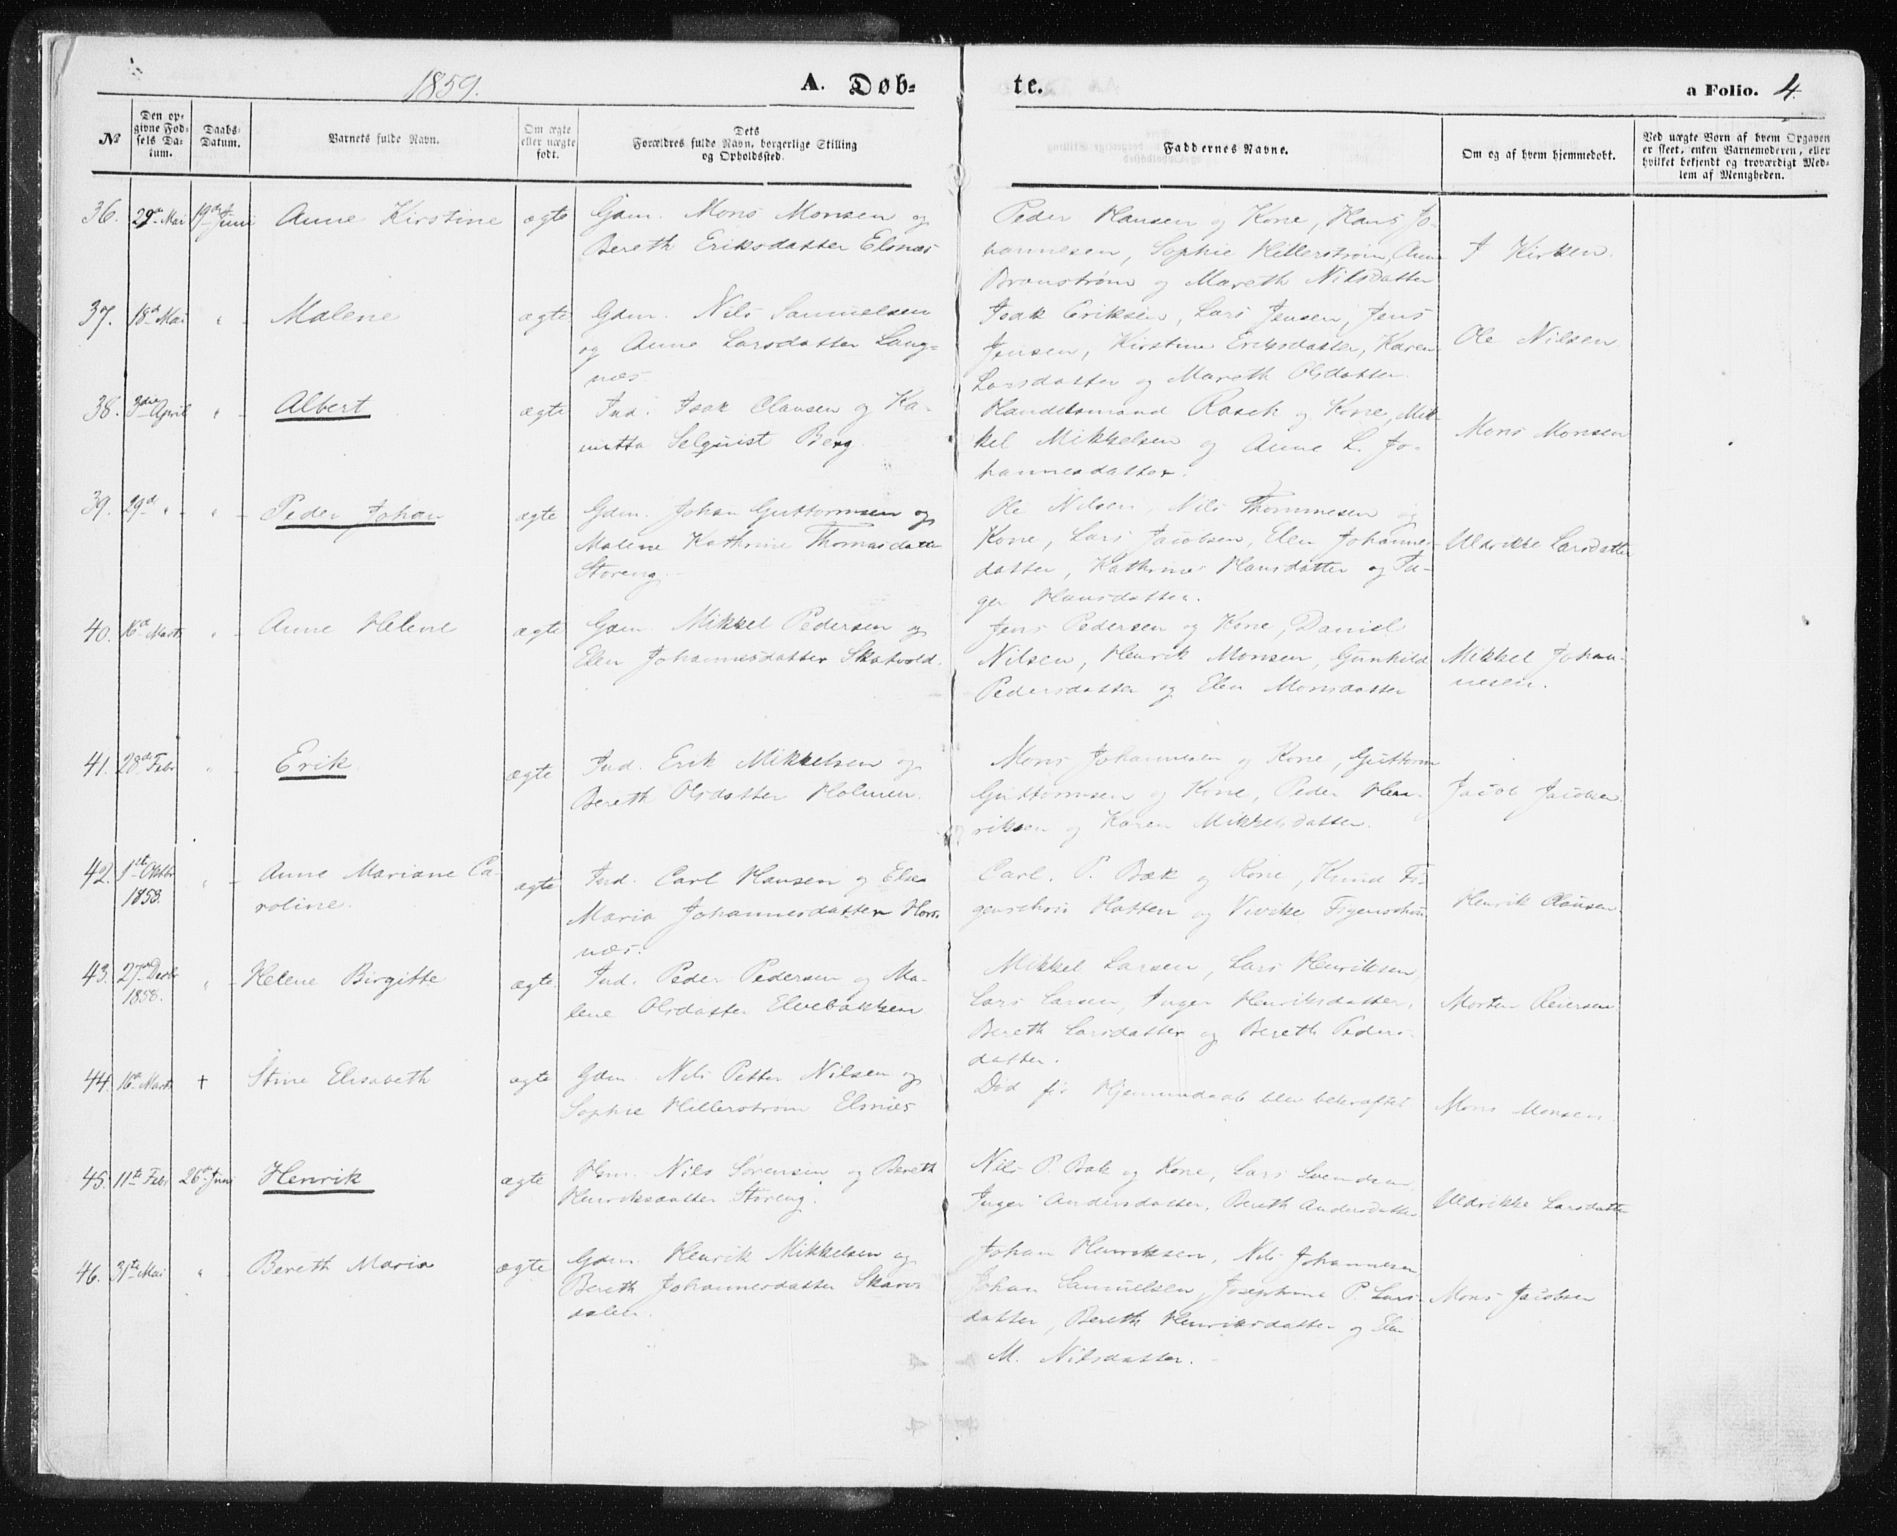 1859. A. Døb= te. a Folio. 4.
№ Den op= givne Fød= sels Da= tum. Daabs= Datum. Barnets fulde Navn. Om ægte eller uægte født. Dets Forældres fulde Navn, borgerlige Stilling og Opholdssted. Faddernes Navne. Om og af hvem hjemmedøbt. Ved uægte Børn af hvem Opgaven er skeet, enten Barnemoderen, eller hvilket bekjendt og troværdigt Med= lem af Menigheden.
36. 29de Mai 19de Juni Anne Kirstine ægte Gdm. Mons Monsen og Peder Hansen og Kone, Hans Jo-
Bereth Eriksdatter Elsnæs hannesen, Sophie Hillerstrøm, Anne J Kirksen.
Bronstrøm og Mareth Nilsdatter
37. 18de Mai " Malene ægte Gdm. Nils Samuelsen Isak Eriksen, Lars Jensen, Jens
og Anne Larsdatter Lang= Jensen, Kirstine Eriksdatter, Karen Ole Nilsen
næs. Larsdatter og Mareth Olsdatter
38. 3die April " Albert ægte Ind. Isak Clausen og Ka- Handelsmand Rasch og Kone, Mik-
Selquist Berg kel Mikkelsen og Anne L. Jo- Mons Monsen
hannesdatter.
39. 29de " " Peder Johan ægte Gdm. Johan Guttormsen og Ole Nilsen, Nils Thommesen og
Malene Kathrine Thomasdatter Kone, Lars Jacobsen, Elen Johannes- Uldrikke Larsdatter
Storeng. datter, Kathrine Hansdatter og In-
ger Hansdatter.
40. 16de Marts " Anne Helene ægte Gdm. Mikkel Pedersen og Jens Pedersen og Kone, Daniel
Elen Johannesdatter Skatvold. Nilsen, Henrik Monsen, Gunhild Mikkel Johan-
Pedersdatter og Elen Monsdatter nesen.
41. 28de Febr " Erik ægte Ind. Erik Mikkelsen og Mons Johannesen og Kone, Guttorm
Bereth Olsdatter Holmen. Guttormsen og Kone, Peder Hen- Jacob Jacobsen.
riksen og Karen Mikkelsdatter.
42. 1ste Oktbr 1858. " Anne Mariane Ca- ægte Ind. Carl Hansen og Elen Carl. P. Bæk og Kone, Knud Fi-
roline. Maria Johannesdatter Hors- genschou Hatten og Vivike Figenschou Henrik Clausen.
næs.
43. 27de Decbr 1858. " Helene Birgitte ægte Ind. Peder Pedersen og Ma- Mikkel Larsen, Lars Henriksen,
lene Olsdatter Elvebakken Lars Larsen, Inger Henriksdatter, Morten Reiersen
Bereth Larsdatter og Bereth Peders-
datter.
44. 16de Marts + Stine Elisabeth ægte Gdm Nils Petter Nilsen og Død før Hjemmedaab blev bekræftet
Sophie Hillerstrøm Elsnæs Mons Monsen.
45. 11te Febr 26de Juni Henrik ægte Hsm. Nils Sørensen og Bereth Nils P. Bæk og Kone, Lars Svendsen
Henriksdatter Storeng. Inger Andersdatter, Bereth Andersdatter Uldrikke Larsdatter
46. 31te Mai " Bereth Maria ægte Gdm. Henrik Mikkelsen og Johan Henriksen, Nils Johannesen
Bereth Johannesdatter Skarv- Johan Samuelsen, Josephine P. Lars- Mons Jacobsen
dalen. datter, Bereth Henriksdatter og Elen
M. Nilsdatter.